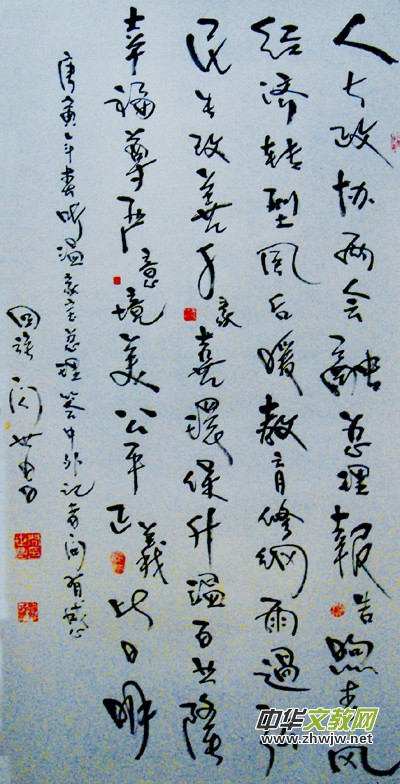 人大政协两会融总理报告煦春风
经济转型风后暖教育修纲雨过
民生改善千家喜环保升温百业隆
幸福尊严意境美公平正义比日明
庚寅年春听温家宝总理答中外记者问有感
回族闪世昌
中华文教网
www.zhwjw.net